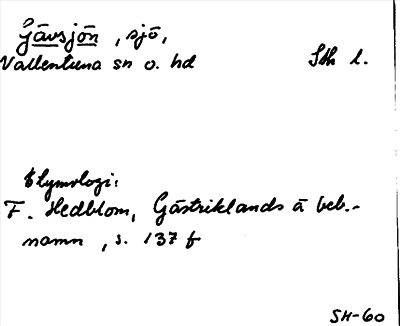 Gävsjön, sjö,
Vallentuna sn o. hd Sth l.
Etymologi:
F. Hedblom, Gästriklands ä beb.-
namn, s. 137 f
SH-60